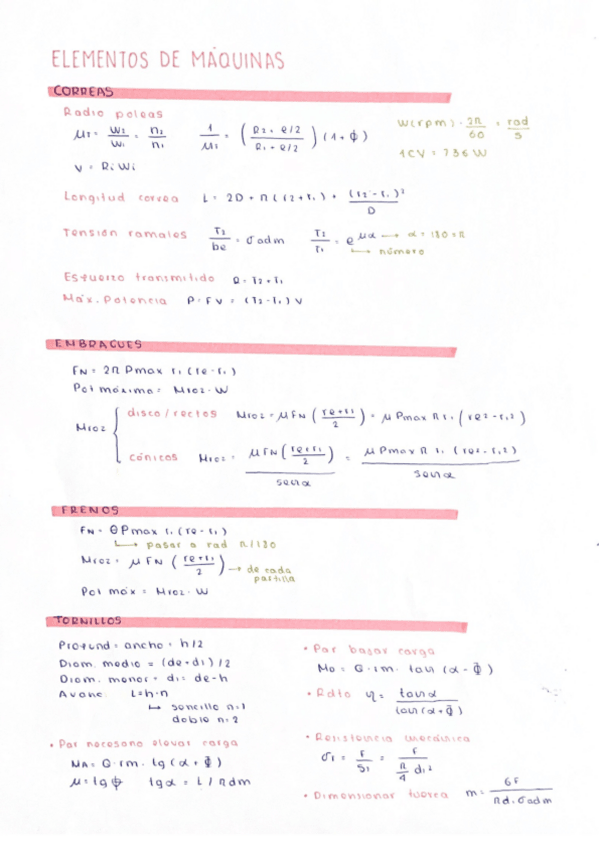 ELEMENTOS DE MÁQUINAS
CORREAS
Radio poleas
μT = W2/W1 = n2/n1    1/μT = ( (R2 + e/2) / (R1 + e/2) ) (1 + ϕ)    W(rpm) · 2π/60 = rad/s
1CV = 736 W
V = Ri Wi
Longitud correa   L = 2D + π (r2 + r1) + (r2 - r1)²/D
Tensión ramales   T2/be = σadm    T2/T1 = e^μα → α = 180 = π
↳ número
Esfuerzo transmitido   R = T2 + T1
Máx. Potencia   P = F V = (T2 - T1) V
EMBRAGUES
FN = 2π Pmax ri (re - ri)
Pot máxima = Mroz · W
Mroz { disco/rectos   Mroz = μ FN ( (re + ri)/2 ) = μ Pmax π ri (re² - ri²)
cónicos   Mroz = μ FN ( (re + ri)/2 ) / senα = μ Pmax π ri (re² - ri²) / senα
FRENOS
FN = θ Pmax ri (re - ri)
↳ pasar a rad π/180
Mroz = μ FN ( (re + ri)/2 ) → de cada pastilla
Pot máx = Mroz · W
TORNILLOS
Profund = ancho = h/2
Diam. medio = (de + di)/2
Diam. menor = di = de - h
Avance L = h · n
↳ sencillo n=1
doble n=2
• Par necesario elevar carga
MA = G · rm · tg (α + ϕ)
μ = tg ϕ    tg α = L / π dm
• Par bajar carga
MD = G · rm · tan (α - ϕ)
• Rdto   η = tan α / tan (α + ϕ)
• Resistencia mecánica
σt = F/S1 = F / (π/4 di²)
• Dimensionar tuerca   m = 6F / (π d · σadm)